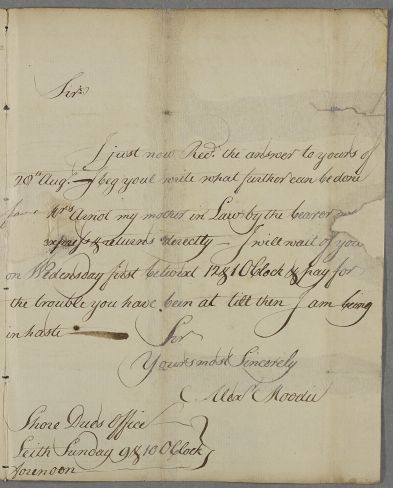 Sir
I just now Recd. the answer to yours of
20th Augt. I beg youl write what further can be done
for Mrs Arnot my mother in Law by the bearer
express & returns directly — I will wait of you
on Wedensday first betwixt 12 & 1 OClock & pay for
the trouble you have been at till then I am being
in haste
Sir
Yours most Sincerely
Alexr Moodie
Shore Dues Office
Leith Sunday 9 & 10 OClock
forenoon